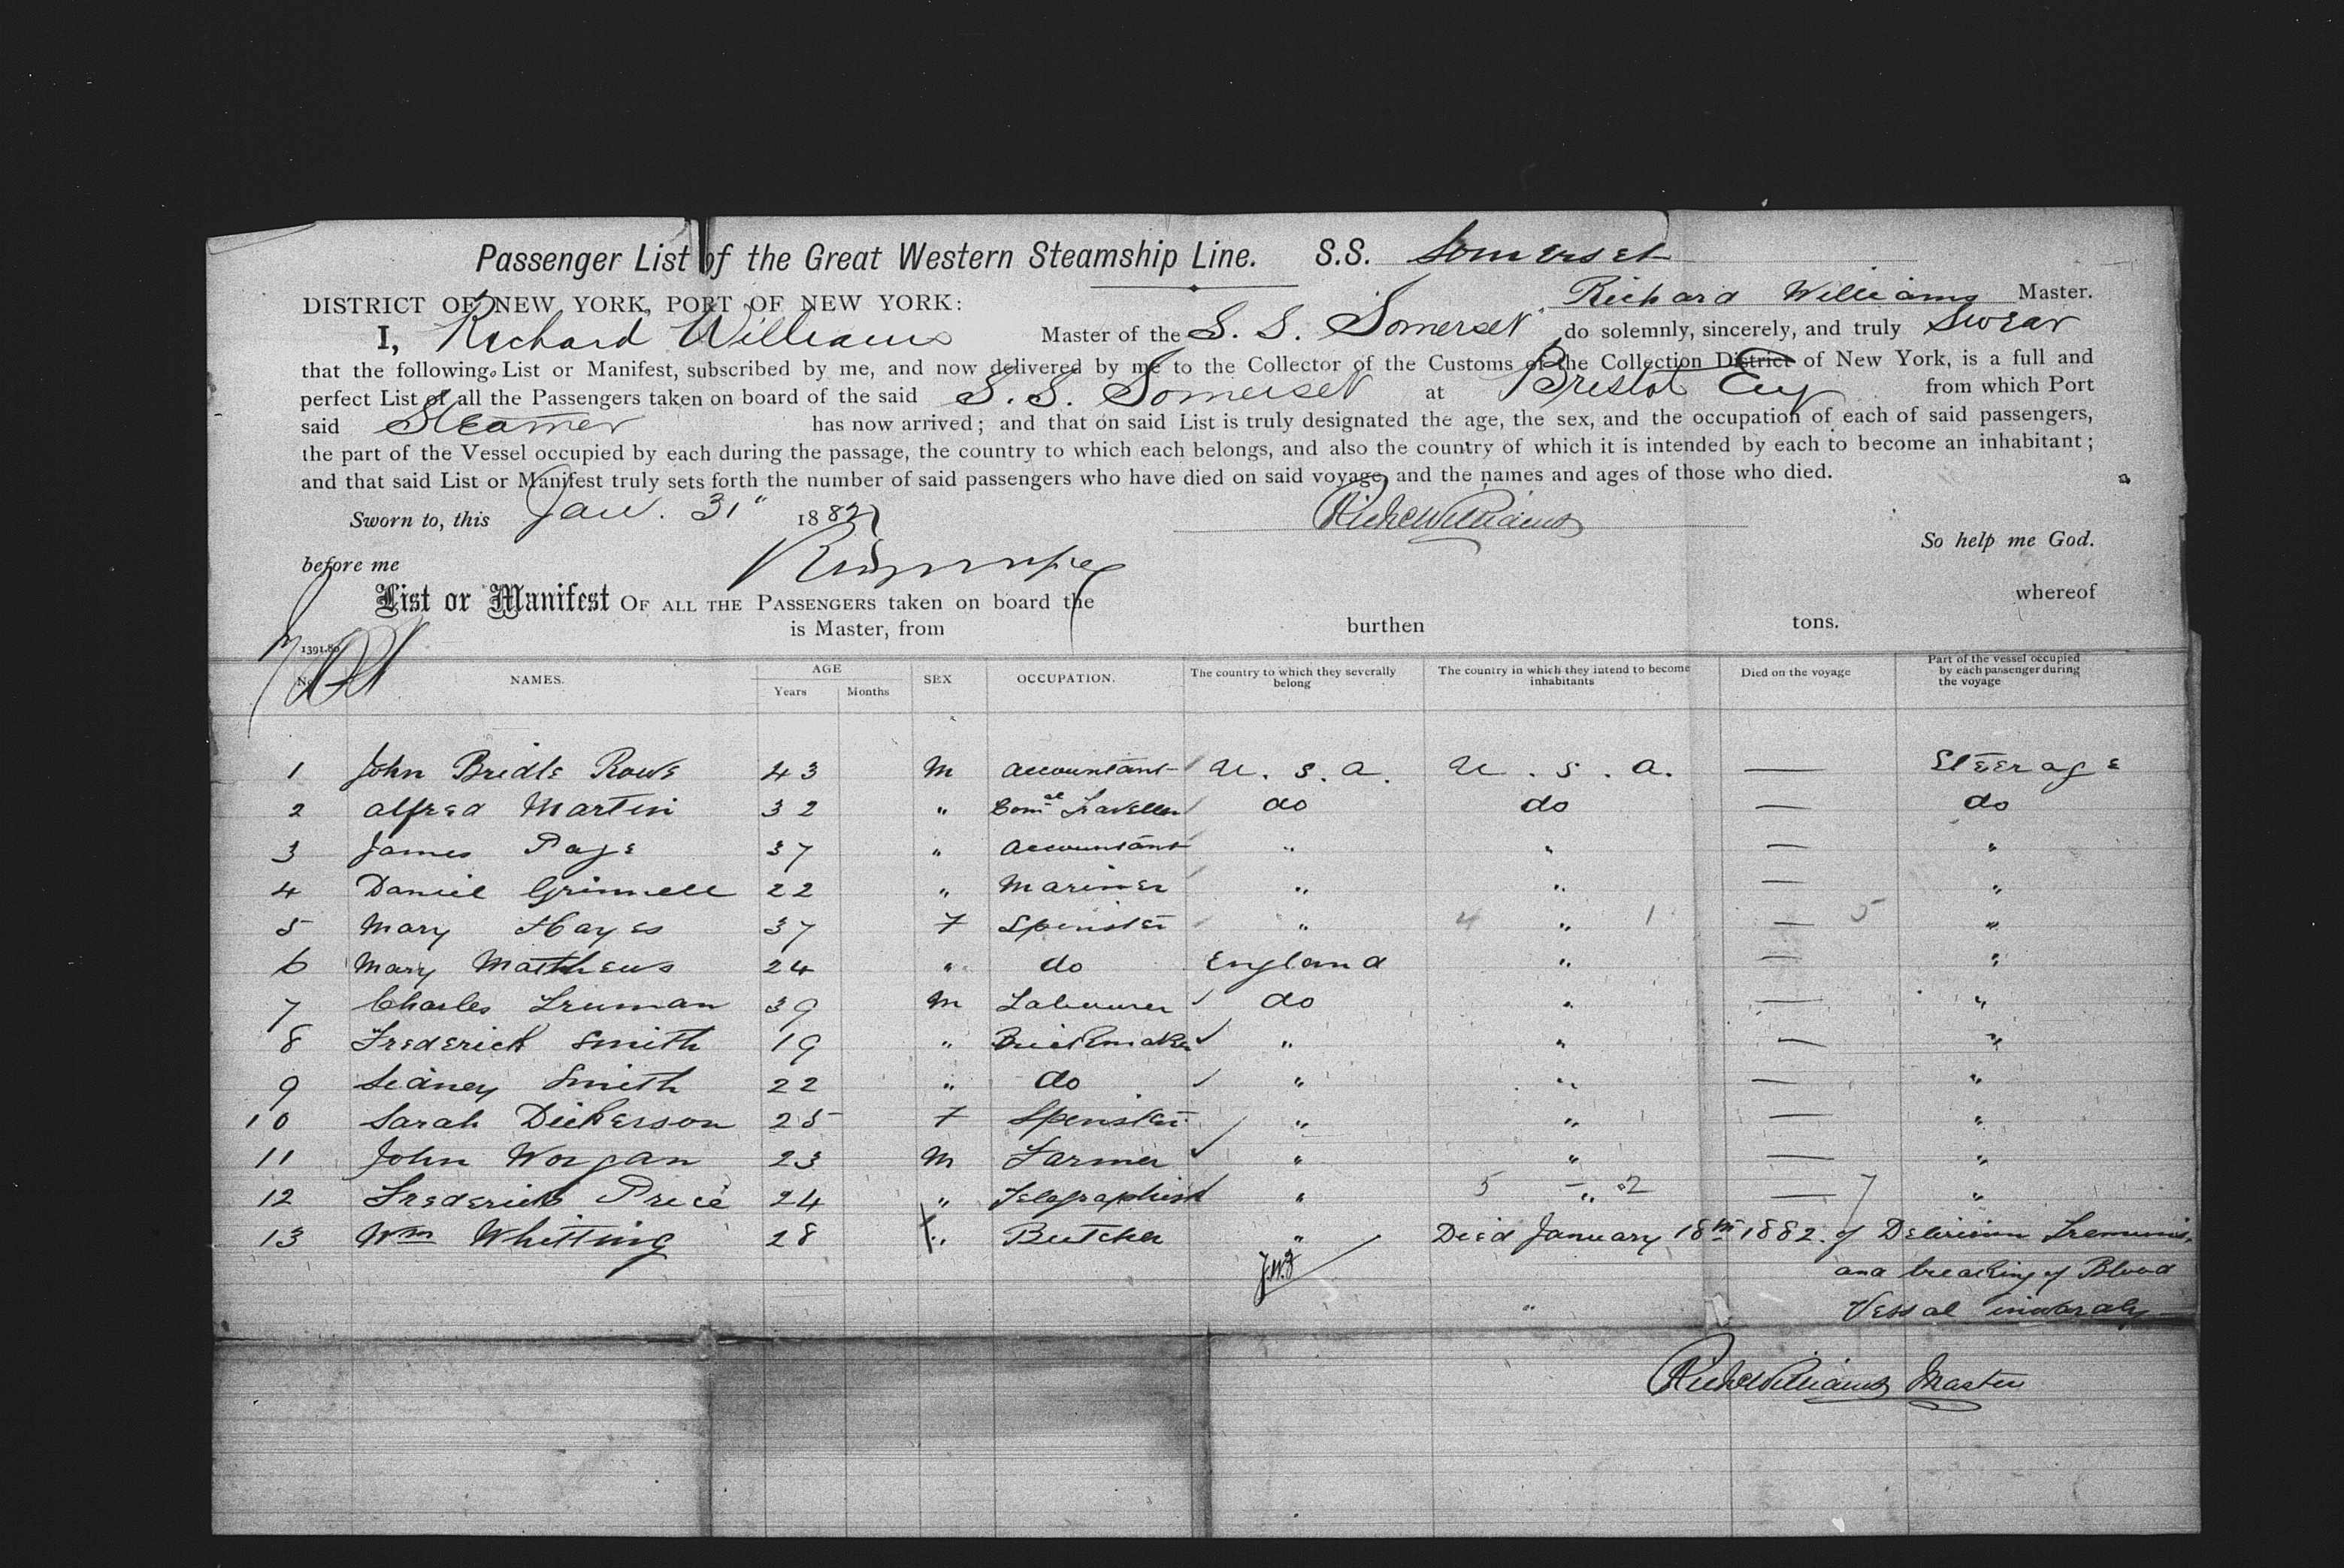 Passenger List of the Great Western Steamship Line. S.S. Somerset
DISTRICT OF NEW YORK, PORT OF NEW YORK: Richard Williams Master.
I, Richard Williams Master of the S. S. Somerset do solemnly, sincerely, and truly Swear
that the following List or Manifest, subscribed by me, and now delivered by me to the Collector of the Customs of the Collection District of New York, is a full and
perfect List of all the Passengers taken on board of the said S. S. Somerset at Bristol Eng from which Port
said Steamer has now arrived; and that on said List is truly designated the age, the sex, and the occupation of each of said passengers,
the part of the Vessel occupied by each during the passage, the country to which each belongs, and also the country of which it is intended by each to become an inhabitant;
and that said List or Manifest truly sets forth the number of said passengers who have died on said voyage, and the names and ages of those who died.
Sworn to, this Jan. 31" 1882 Richd Williams
So help me God.
before me
List or Manifest OF ALL THE PASSENGERS taken on board the whereof
is Master, from burthen tons.
1391.80
No. NAMES. AGE Years Months SEX OCCUPATION. The country to which they severally belong The country in which they intend to become inhabitants Died on the voyage Part of the vessel occupied by each passenger during the voyage
1 John Bridle Rowe 43 M Accountant U. S. A. U. S. A. — Steerage
2 Alfred Martin 32 " Comal Traveller do do — do
3 James Page 37 " Accountant " " — "
4 Daniel Grinnell 22 " Mariner " " — "
5 Mary Hayes 37 F Spinster " 4 " 1 — 5 "
6 Mary Matthews 24 " do England " — "
7 Charles Truman 39 M Labourer do " — "
8 Frederick Smith 19 " Brickmaker " " — "
9 Sidney Smith 22 " do " " — "
10 Sarah Dickerson 25 F Spinster " " — "
11 John Worgan 23 M Farmer " " — "
12 Frederick Price 24 " Telegraphist " 5 " 2 — 7 "
13 Wm Whitting 28 " Butcher " Died January 18th 1882. of Delirium Tremens,
and breaking of Blood
Vessal inwardly
Richd Williams Master